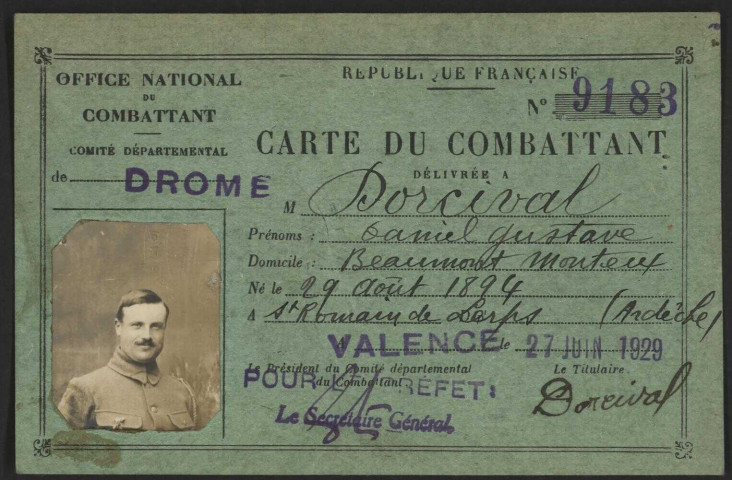 OFFICE NATIONAL
DU
COMBATTANT
COMITÉ DÉPARTEMENTAL
de DROME
REPUBLIQUE FRANÇAISE
N° 9183
CARTE DU COMBATTANT
DÉLIVRÉE A
M Dorcival
Prénoms : Daniel Gustave
Domicile : Beaumont Monteux
Né le 29 août 1894
A St Romain de Lerps (Ardèche)
A VALENCE le 27 JUIN 1929
Le Président du Comité départemental
du Combattant
Le Titulaire.
POUR LE PRÉFET:
Le Secrétaire Général,
Dorcival